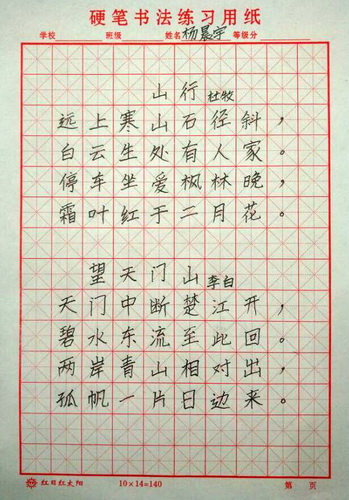 硬笔书法练习用纸
学校 班级 姓名 杨晨宇 等级分
山行 杜牧
远上寒山石径斜，
白云生处有人家。
停车坐爱枫林晚，
霜叶红于二月花。
望天门山 李白
天门中断楚江开，
碧水东流至此回。
两岸青山相对出，
孤帆一片日边来。
红日红太阳 10×14=140 第 页